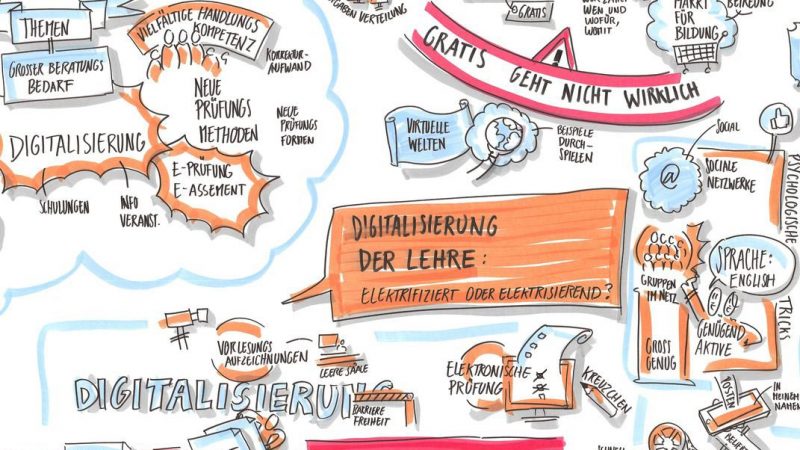 THEMEN
GROSSER BERATUNGS
BEDARF
VIELFÄLTIGE HANDLUNGS
KOMPETENZ
KORREKTUR-
AUFWAND
NEUE
PRÜFUNGS
METHODEN
NEUE
PRÜFUNGS
FORMEN
DIGITALISIERUNG
E-PRÜFUNG
E-ASSEMENT
SCHULUNGEN
INFO
VERANST.
VERTEILUNG
GRATIS
WEN UND
WOFÜR,
WOMIT
MARKT
FÜR
BILDUNG
GRATIS GEHT NICHT WIRKLICH
VIRTUELLE
WELTEN
BEISPIELE
DURCH-
SPIELEN
SOCIAL
@
SOZIALE
NETZWERKE
PSYCHOLOGISCHE
TRICKS
DIGITALISIERUNG
DER LEHRE:
ELEKTRIFIZIERT ODER ELEKTRISIEREND?
GRUPPEN
IM NETZ
SPRACHE:
ENGLISH
GROSS
GENUG
GENÜGEND
AKTIVE
VORLESUNGS
AUFZEICHNUNGEN
LEERE SÄLE
DIGITALISIERUNG
BARRIERE
FREIHEIT
ELEKTRONISCHE
PRÜFUNG
KREUZCHEN
POSTEN
IN
MEINEM
NAMEN
SCHNELL